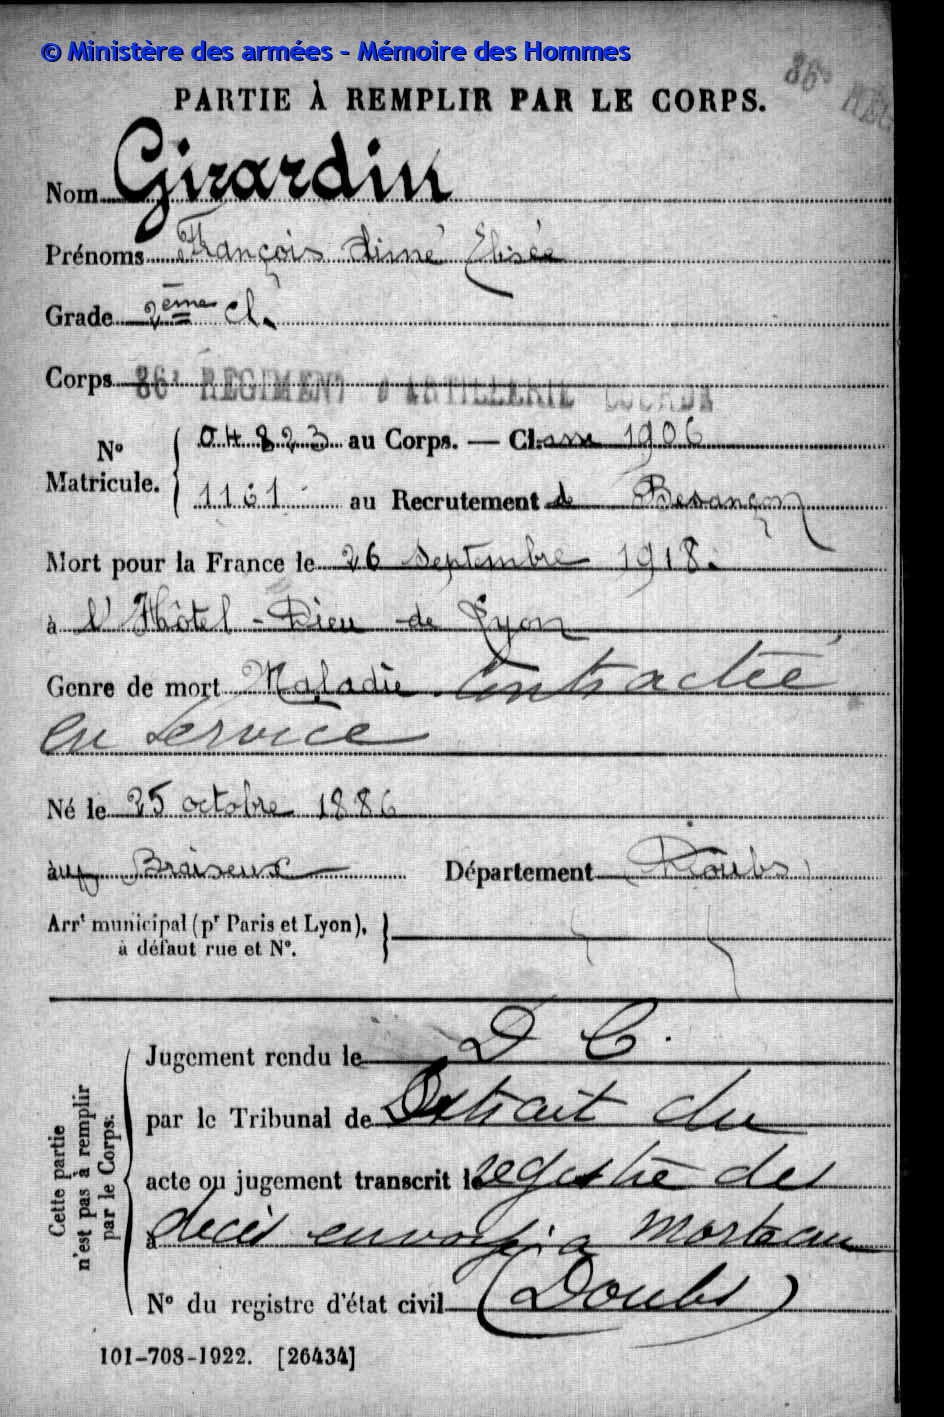 © Ministère des armées - Mémoire des Hommes
86e RÉG
PARTIE À REMPLIR PAR LE CORPS.
Nom Girardin
Prénoms François Aimé Elisée
Grade 2ème cl.
Corps 86e REGIMENT D'ARTILLERIE LOURDE
No Matricule. { 04823 au Corps. — Classe 1906
1161 au Recrutement de Besançon
Mort pour la France le 26 septembre 1918.
à l'Hôtel-Dieu de Lyon
Genre de mort Maladie contractée
en service
Né le 25 octobre 1886
à Département Doubs
Arrt municipal (pr Paris et Lyon), }
à défaut rue et No.
Cette partie n'est pas à remplir par le Corps.
Jugement rendu le D C.
par le Tribunal de Extrait du
acte ou jugement transcrit le registre des
à décès envoyé à Morteau
No du registre d'état civil (Doubs)
101-708-1922. [26434]